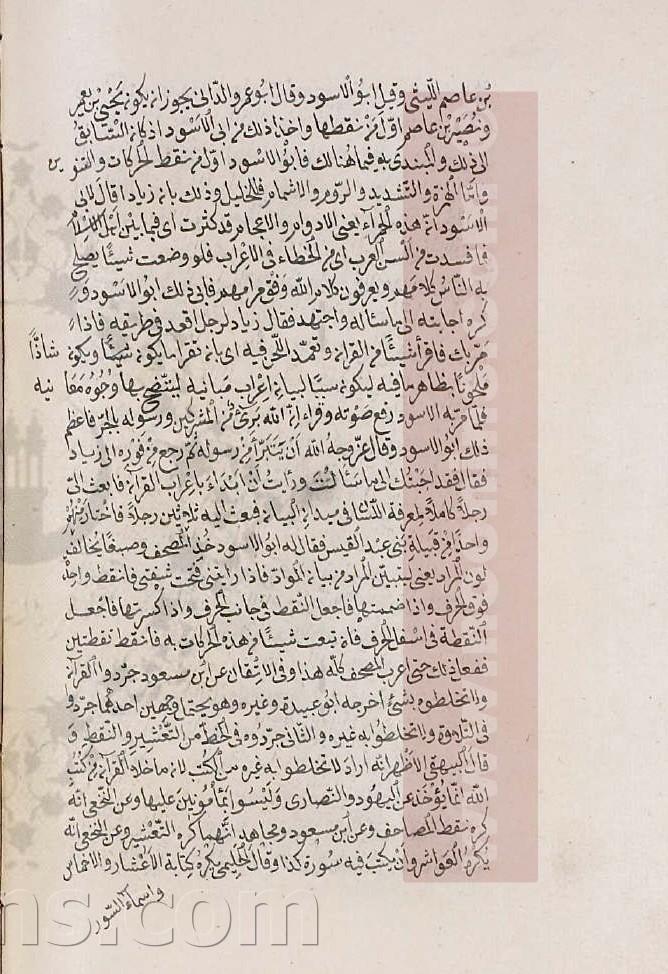 بن عاصم الليثى وقيل ابو الاسود وقال ابو عمرو الدانى يجوز ان يكون يحيى بن يعمر
ونصير بن عاصم اول من نقطها واخذا ذلك من ابى الاسود اذ كان السابق
الى ذلك والمبتدى به فيما هنالك فابو الاسود اول من نقط الحركات والتنوين
واما الهمزة والتشديد والروم والاشمام فالخليل وذلك بان زيادا قال لابى
الاسود ان هذه الحمراء يعنى الاروام والاعجام قد كثرت اى فيما بين اهل الاسلام
فافسدت من السن العرب اى من الخطاء فى الاعراب فلو وضعت شيئا يصلح
به الناس كلامهم ويعرفون كلام الله وفق مرامهم فابى ذلك ابو الاسود و
كره اجابته الى ما سئاله واجتهد فقال زياد لرجل اقعد فى طريقه فاذا
مر بك فاقرأ شيئا من القرآن وتعمد اللحن فيه اى بان تقرا ما يكون شيئا ويكون شاذًا
ملحونا بظاهر ما فيه ليكون سببا لبيان اعراب مبانيه ليتضح بها وجوه معانيه
فلما مر به الاسود رفع صوته وقراء ان الله برئ من المشركين ورسوله بالجر فاعظم
ذلك ابو الاسود وقال عز وجه الله ان يتبرأ من رسوله ثم رجع من فوره الى زياد
فقال فقد اجبتك الى ما سئالت ورأيت ان ابداء باعراب القرآن فابعث الى
رجلا كاملا لمعرفة اللسان فى ميدان البيان فبعث اليه ثلاثين رجلا فاختار منهم
واحدا من قبيلة بنى عبد القيس فقال له ابو الاسود خذ المصحف وصبغا يخالف
لون المراد يعنى ليتبين المراد من بيان المواد فاذا رايتنى فتحت شفتى فانقط واحدة
فوق الحرف واذا ضممتها فاجعل النقط فى جانب الحرف واذا كسرتها فاجعل
النقطة فى اسفل الحرف فان تبعت شيئا من هذه الحركات به فانقط نقطتين
ففعل ذلك حتى اعرب المصحف كله هذا وفى الاتقان عن ابن مسعود جردوا القرآن
ولا تخلطوه بشئ اخرجه ابو عبيدة وغيره وهو يحتمل وجهين احدهما جردوا
فى التلاوة ولا تخلطوا به غيره والثانى جردوه فى الخط من التعشير والنقط و
قال البيهقى الاظهر انه اراد لا تخلطوا به غيره من الكتب لان ما خلا القرآن من كتب
الله انما يؤخذ عن اليهود والنصارى وليسوا بمأمونين عليها وعن النخعى انه
كره نقط المصاحف وعن ابن مسعود ومجاهد انهما كرها التعشير وعن النخعى انه
يكره العواشر وان يكتب فيه سورة كذا وقال الحليمى يكره كتابة الاعشار والاخماس
واسماء السور
ns.com